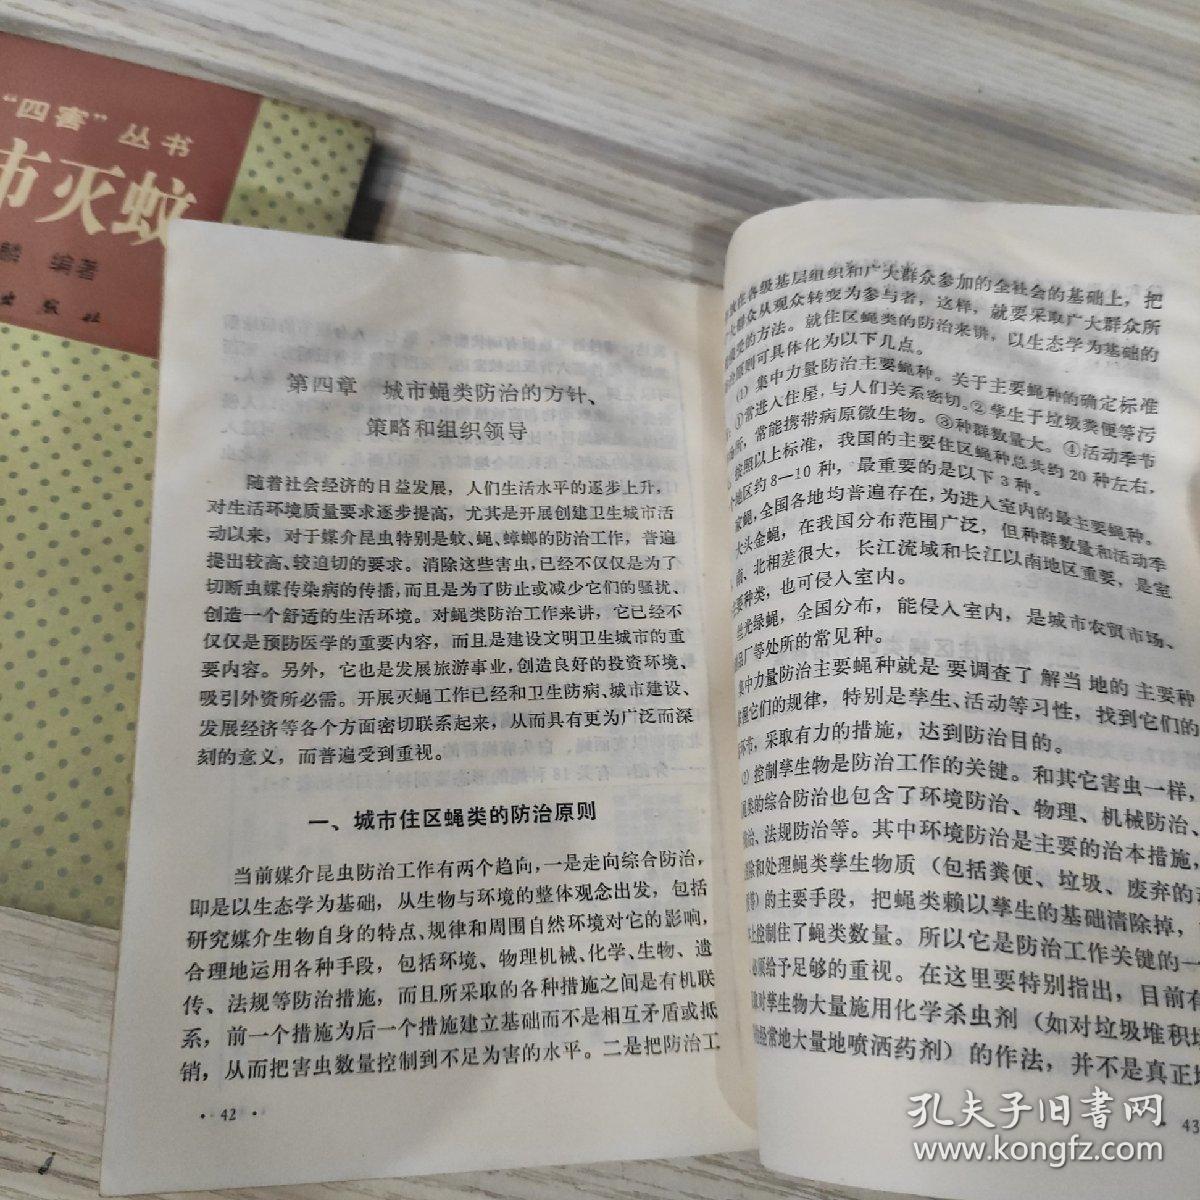 “四害”丛书
市灭蚊
麟 编著
出版社
第四章 城市蝇类防治的方针、
策略和组织领导
随着社会经济的日益发展，人们生活水平的逐步上升，
对生活环境质量要求逐步提高，尤其是开展创建卫生城市活
动以来，对于媒介昆虫特别是蚊、蝇、蟑螂的防治工作，普遍
提出较高、较迫切的要求。消除这些害虫，已经不仅仅是为了
切断虫媒传染病的传播，而且是为了防止或减少它们的骚扰、
创造一个舒适的生活环境。对蝇类防治工作来讲，它已经不
仅仅是预防医学的重要内容，而且是建设文明卫生城市的重
要内容。另外，它也是发展旅游事业，创造良好的投资环境、
吸引外资所必需。开展灭蝇工作已经和卫生防病、城市建设、
发展经济等各个方面密切联系起来，从而具有更为广泛而深
刻的意义，而普遍受到重视。
一、城市住区蝇类的防治原则
当前媒介昆虫防治工作有两个趋向，一是走向综合防治，
即是以生态学为基础，从生物与环境的整体观念出发，包括
研究媒介生物自身的特点、规律和周围自然环境对它的影响，
合理地运用各种手段，包括环境、物理机械、化学、生物、遗
传、法规等防治措施，而且所采取的各种措施之间是有机联
系，前一个措施为后一个措施建立基础而不是相互矛盾或抵
销，从而把害虫数量控制到不足为害的水平。二是把防治工
· 42 ·
在各级基层组织和广大群众参加的全社会的基础上，把
群众从观众转变为参与者，这样，就要采取广大群众所
的方法。就住区蝇类的防治来讲，以生态学为基础的
原则可具体化为以下几点。
(1) 集中力量防治主要蝇种。关于主要蝇种的确定标准
①常进入住屋，与人们关系密切。②孳生于垃圾粪便等污
所，常能携带病原微生物。③种群数量大。④活动季节
按照以上标准，我国的主要住区蝇种总共约20种左右，
地区约8—10种，最重要的是以下3种。
家蝇，全国各地均普遍存在，为进入室内的最主要蝇种。
大头金蝇，在我国分布范围广泛，但种群数量和活动季
南、北相差很大，长江流域和长江以南地区重要，是室
要种类，也可侵入室内。
丝光绿蝇，全国分布，能侵入室内，是城市农贸市场、
品厂等处所的常见种。
集中力量防治主要蝇种就是要调查了解当地的主要种
握它们的规律，特别是孳生、活动等习性，找到它们的
环节，采取有力的措施，达到防治目的。
(2) 控制孳生物是防治工作的关键。和其它害虫一样，
蝇类的综合防治也包含了环境防治、物理、机械防治、
防治、法规防治等。其中环境防治是主要的治本措施，
除和处理蝇类孳生物质（包括粪便、垃圾、废弃的
等）的主要手段，把蝇类赖以孳生的基础清除掉，
上控制住了蝇类数量。所以它是防治工作关键的一
必须给予足够的重视。在这里要特别指出，目前有
对孳生物大量施用化学杀虫剂（如对垃圾堆积
经常地大量地喷洒药剂）的作法，并不是真正
· 43
孔夫子旧书网
www.kongfz.com